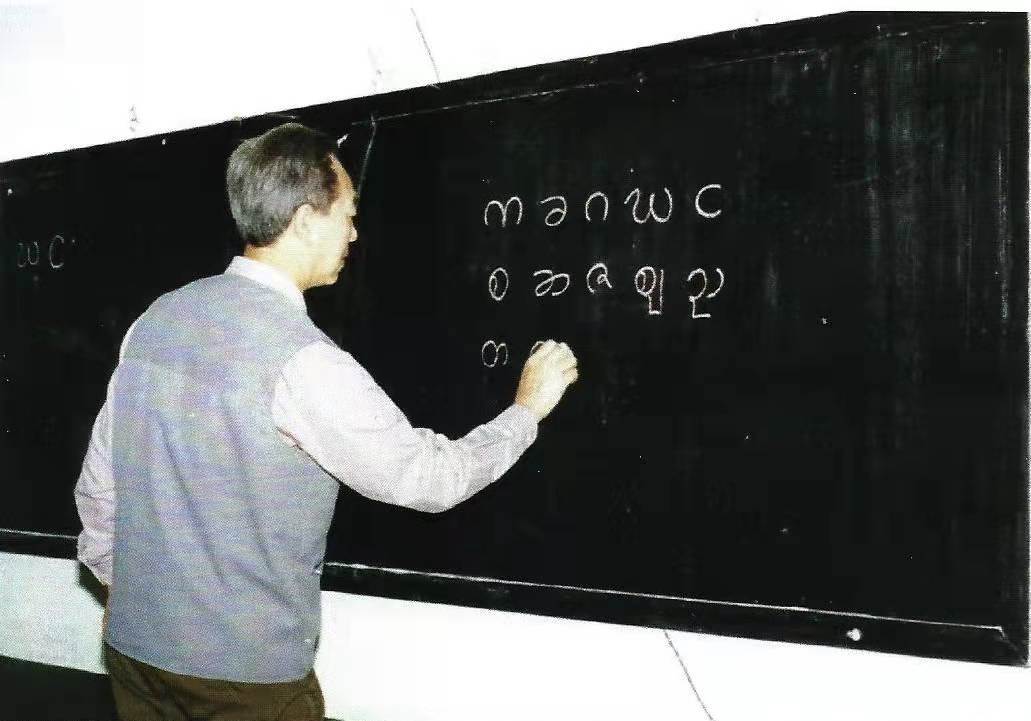 ဃ င
က ခ ဂ ဃ င
စ ဆ ဇ ဈ ည
တ